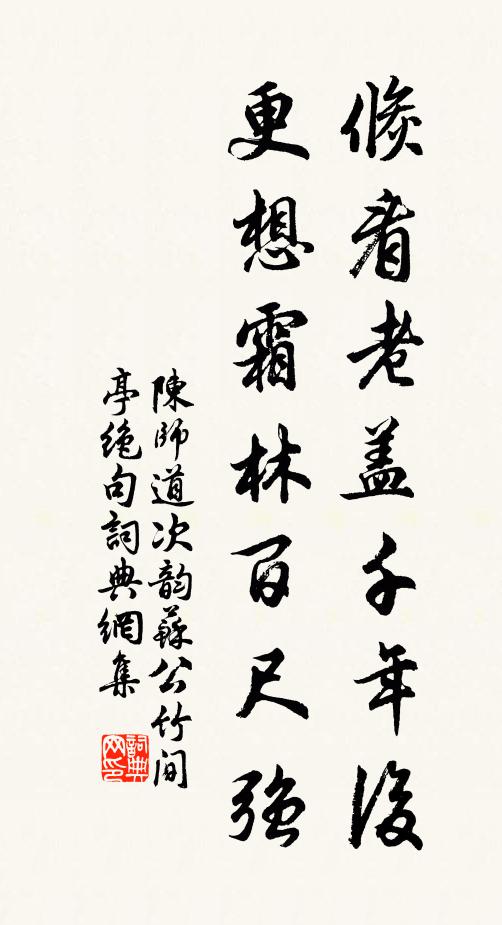 倐看老盖千年後
更想霜林百尺强
陳師道次韵蘇公竹間
亭绝句詞典網集
詞典网印